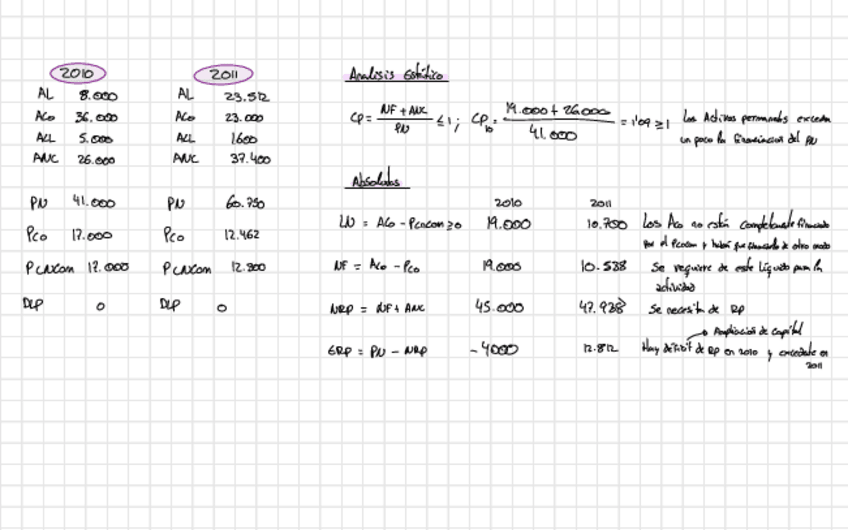 2010 2011
AL 8.000 AL 23.512
ACo 36.000 ACo 23.000
ACL 5.000 ACL 1600
ANC 26.000 ANC 37.400
PN 41.000 PN 60.750
PCo 17.000 PCo 12.462
PCNCom 17.000 PCNCom 12.300
DLP 0 DLP 0
Analisis Estático
CP = NF + ANC / PN ≤ 1 ; CP10 = 19.000 + 26.000 / 41.000 = 1'09 ≥ 1 Los Activos permanentes exceden
un poco la financiacion del PN
Absolutos
2010 2011
= ACo - PCNCom ≥ 0 19.000 10.700 Los ACo no están completamente financiado
por el PCNCom y habrá que financiarlo de otro modo
NF = ACo - PCo 19.000 10.538 Se requiere de este líquido para la
actividad
NRP = NF + ANC 45.000 47.938 Se necesita de RP
Ampliación de Capital
ERP = PN - NRP -4000 12.812 Hay déficit de RP en 2010 y excedente en
2011